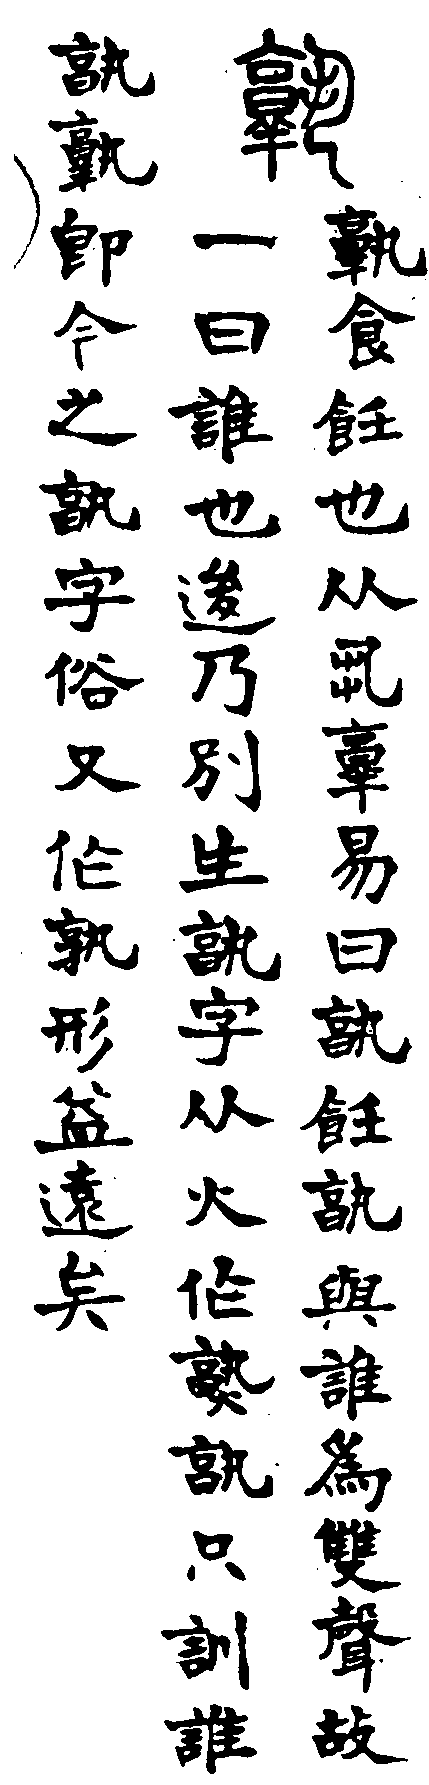 𦏧
𦏧食飪也从丮𦎫易曰孰飪孰與誰爲雙聲故
一曰誰也後乃別生孰字从火作熟孰只訓誰
孰𦏧卽今之孰字俗又作孰形益遠矣